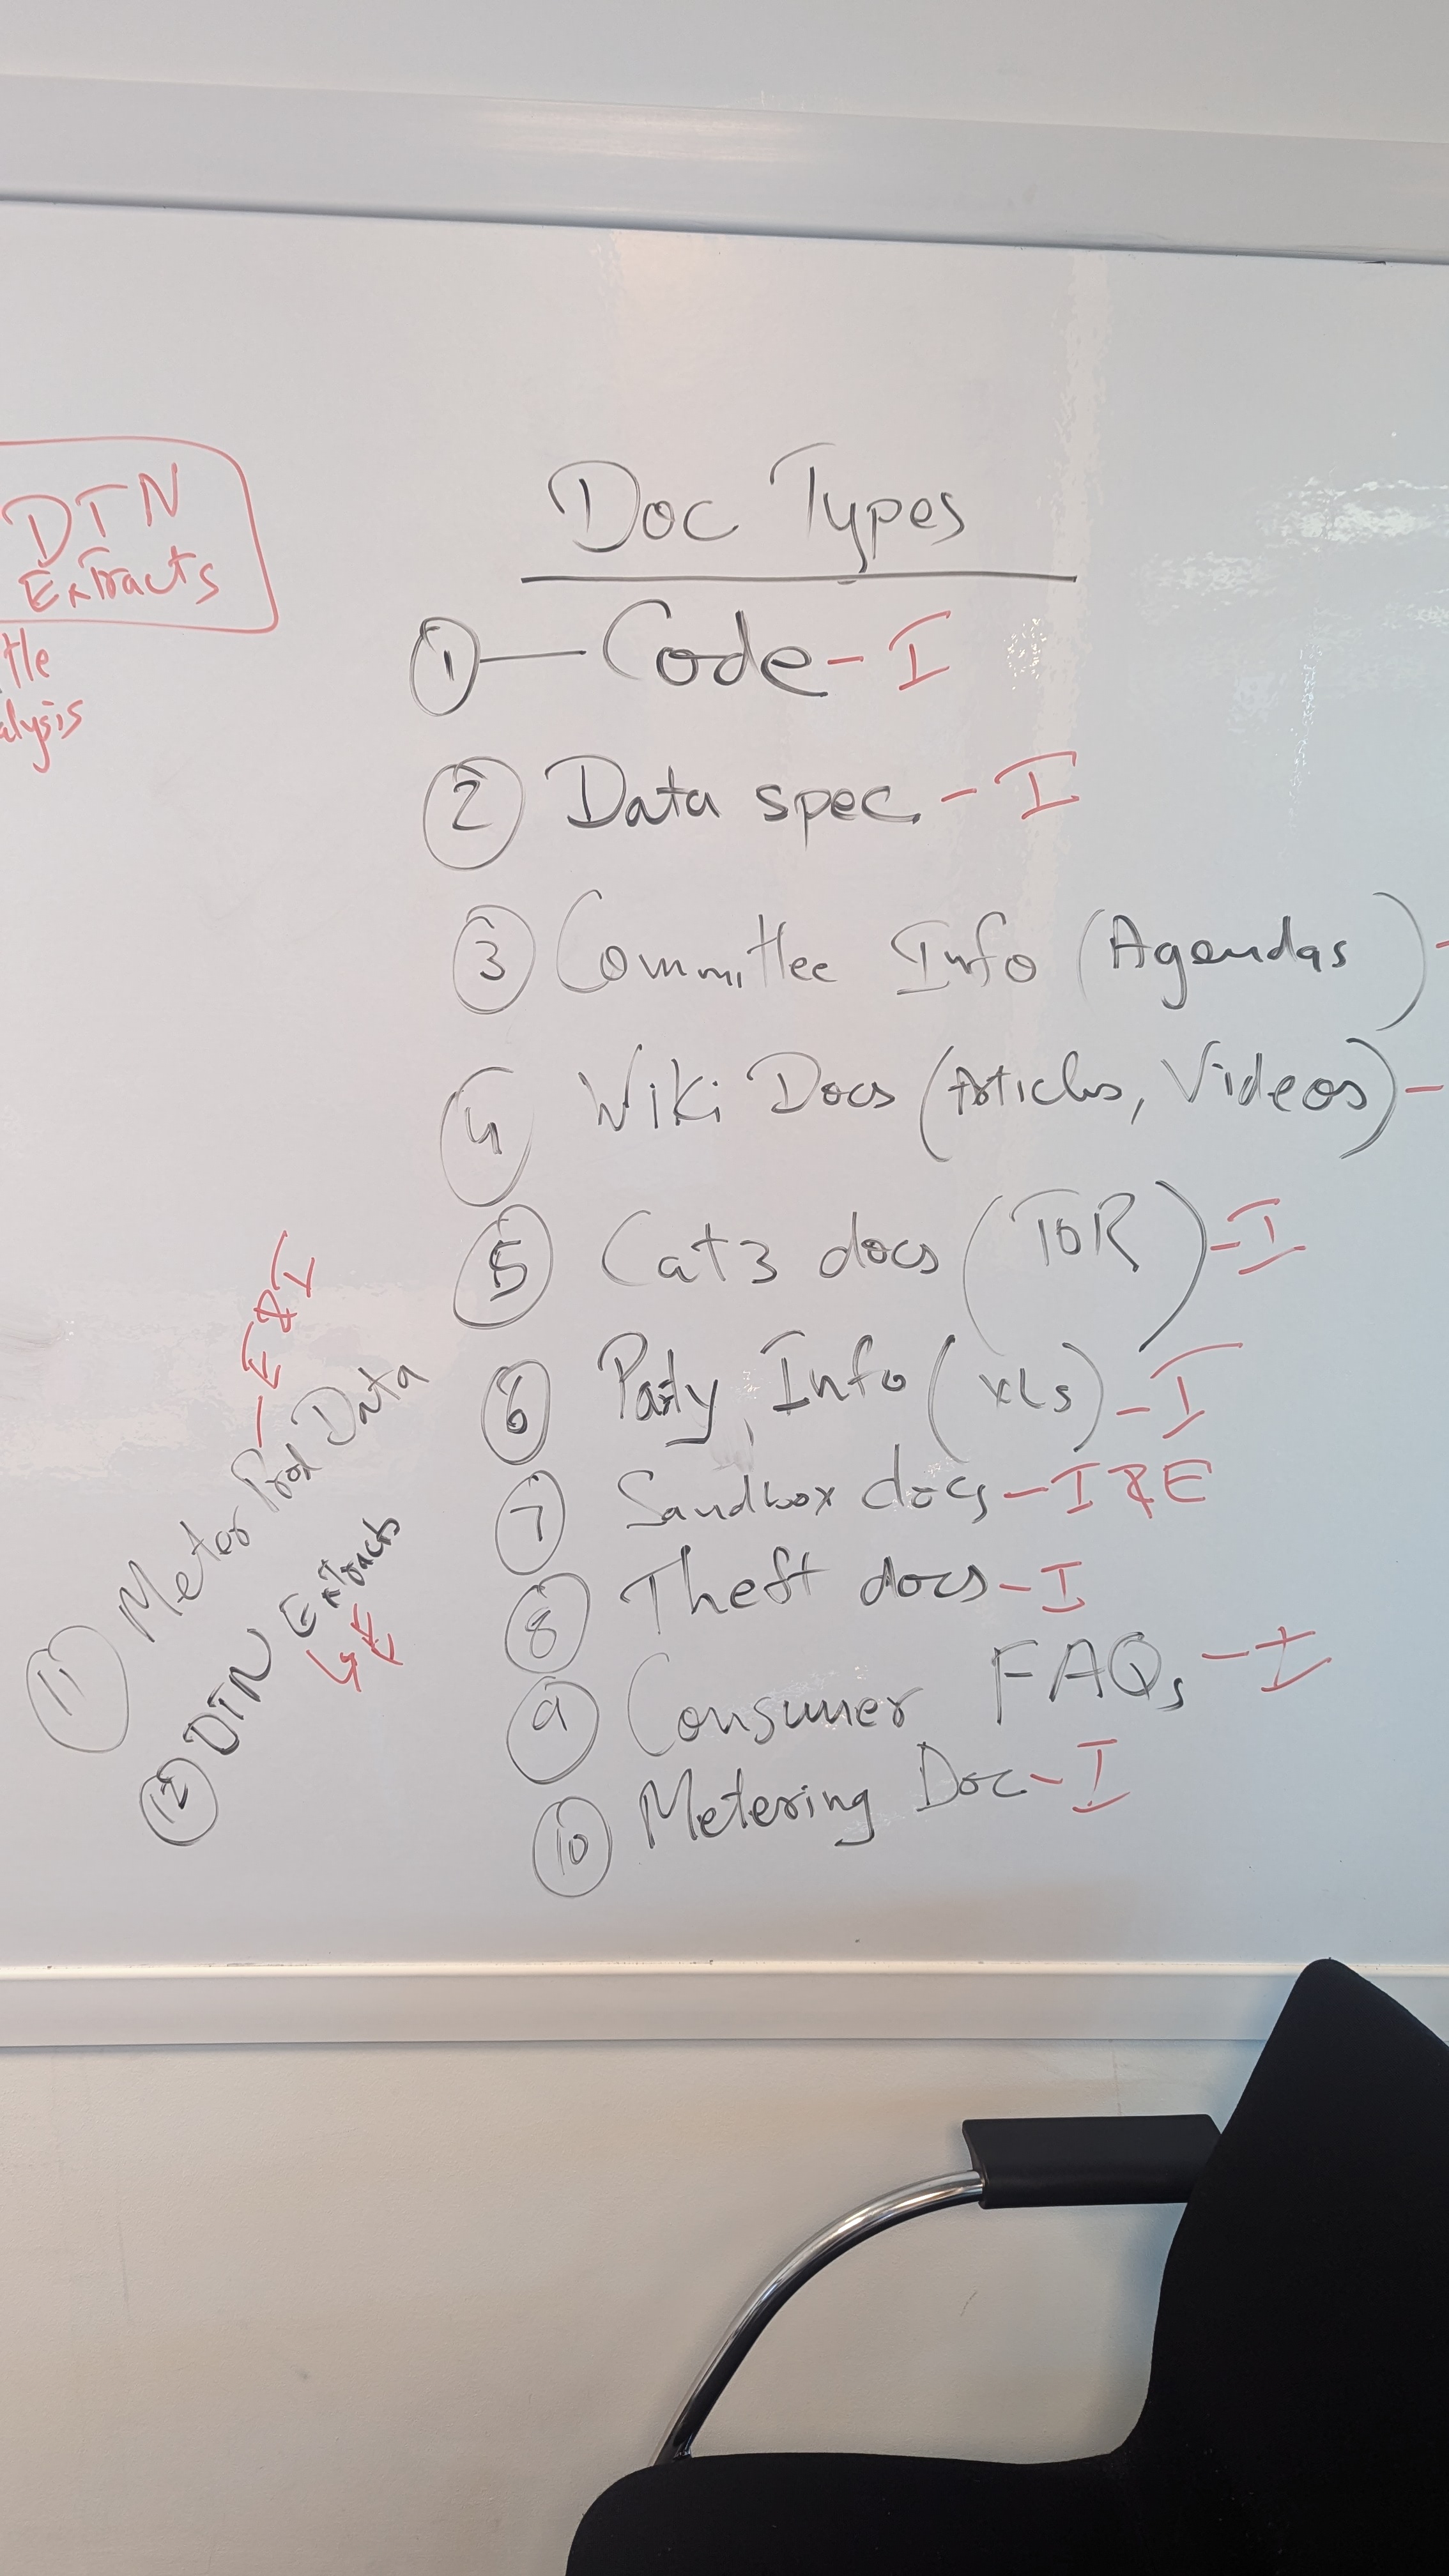 DTN
Extracts
Doc Types
1 — Code - I
2 Data spec - I
3 Committee Info (Agendas) -
4 Wiki Docs (Articles, Videos) -
5 Cat 3 docs (TOR) - I
6 Party Info (xls) - I
7 Sandbox docs - I & E
8 Theft docs - I
9 Consumer FAQs - I
10 Metering Doc - I
11 Meter Prod Data - E & I
12 DTN Extracts
↳ E